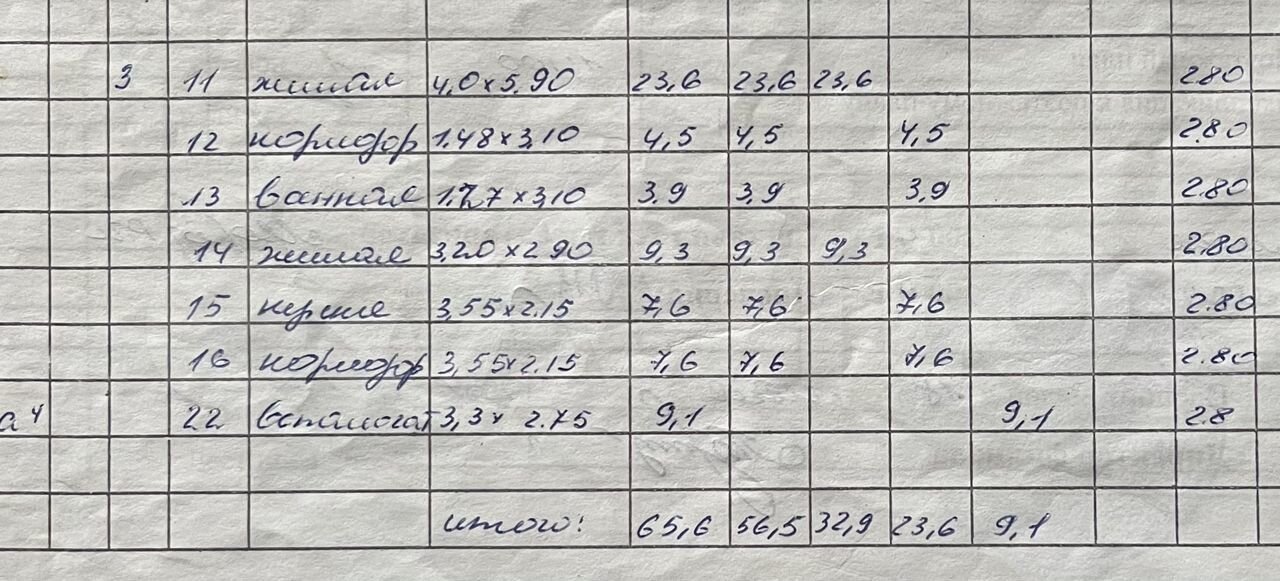 3 11 жилая 4,0 x 5.90 23,6 23,6 23,6 2.80
12 коридор 1.48 x 3,10 4,5 4,5 4,5 2.80
13 ванная 3,10 3.9 3.9 3,9 2.80
14 жилая 3,20 x 2.90 9,3 9,3 9,3 2.80
15 3,55 x 2.15 7,6 7,6 7,6 2.80
16 коридор 3,55 x 2.15 7,6 7,6 7,6 2.80
а4 22 вспомогат 3,3 x 2.75 9,1 9,1 2.8
итого: 65,6 56,5 32,9 23,6 9,1